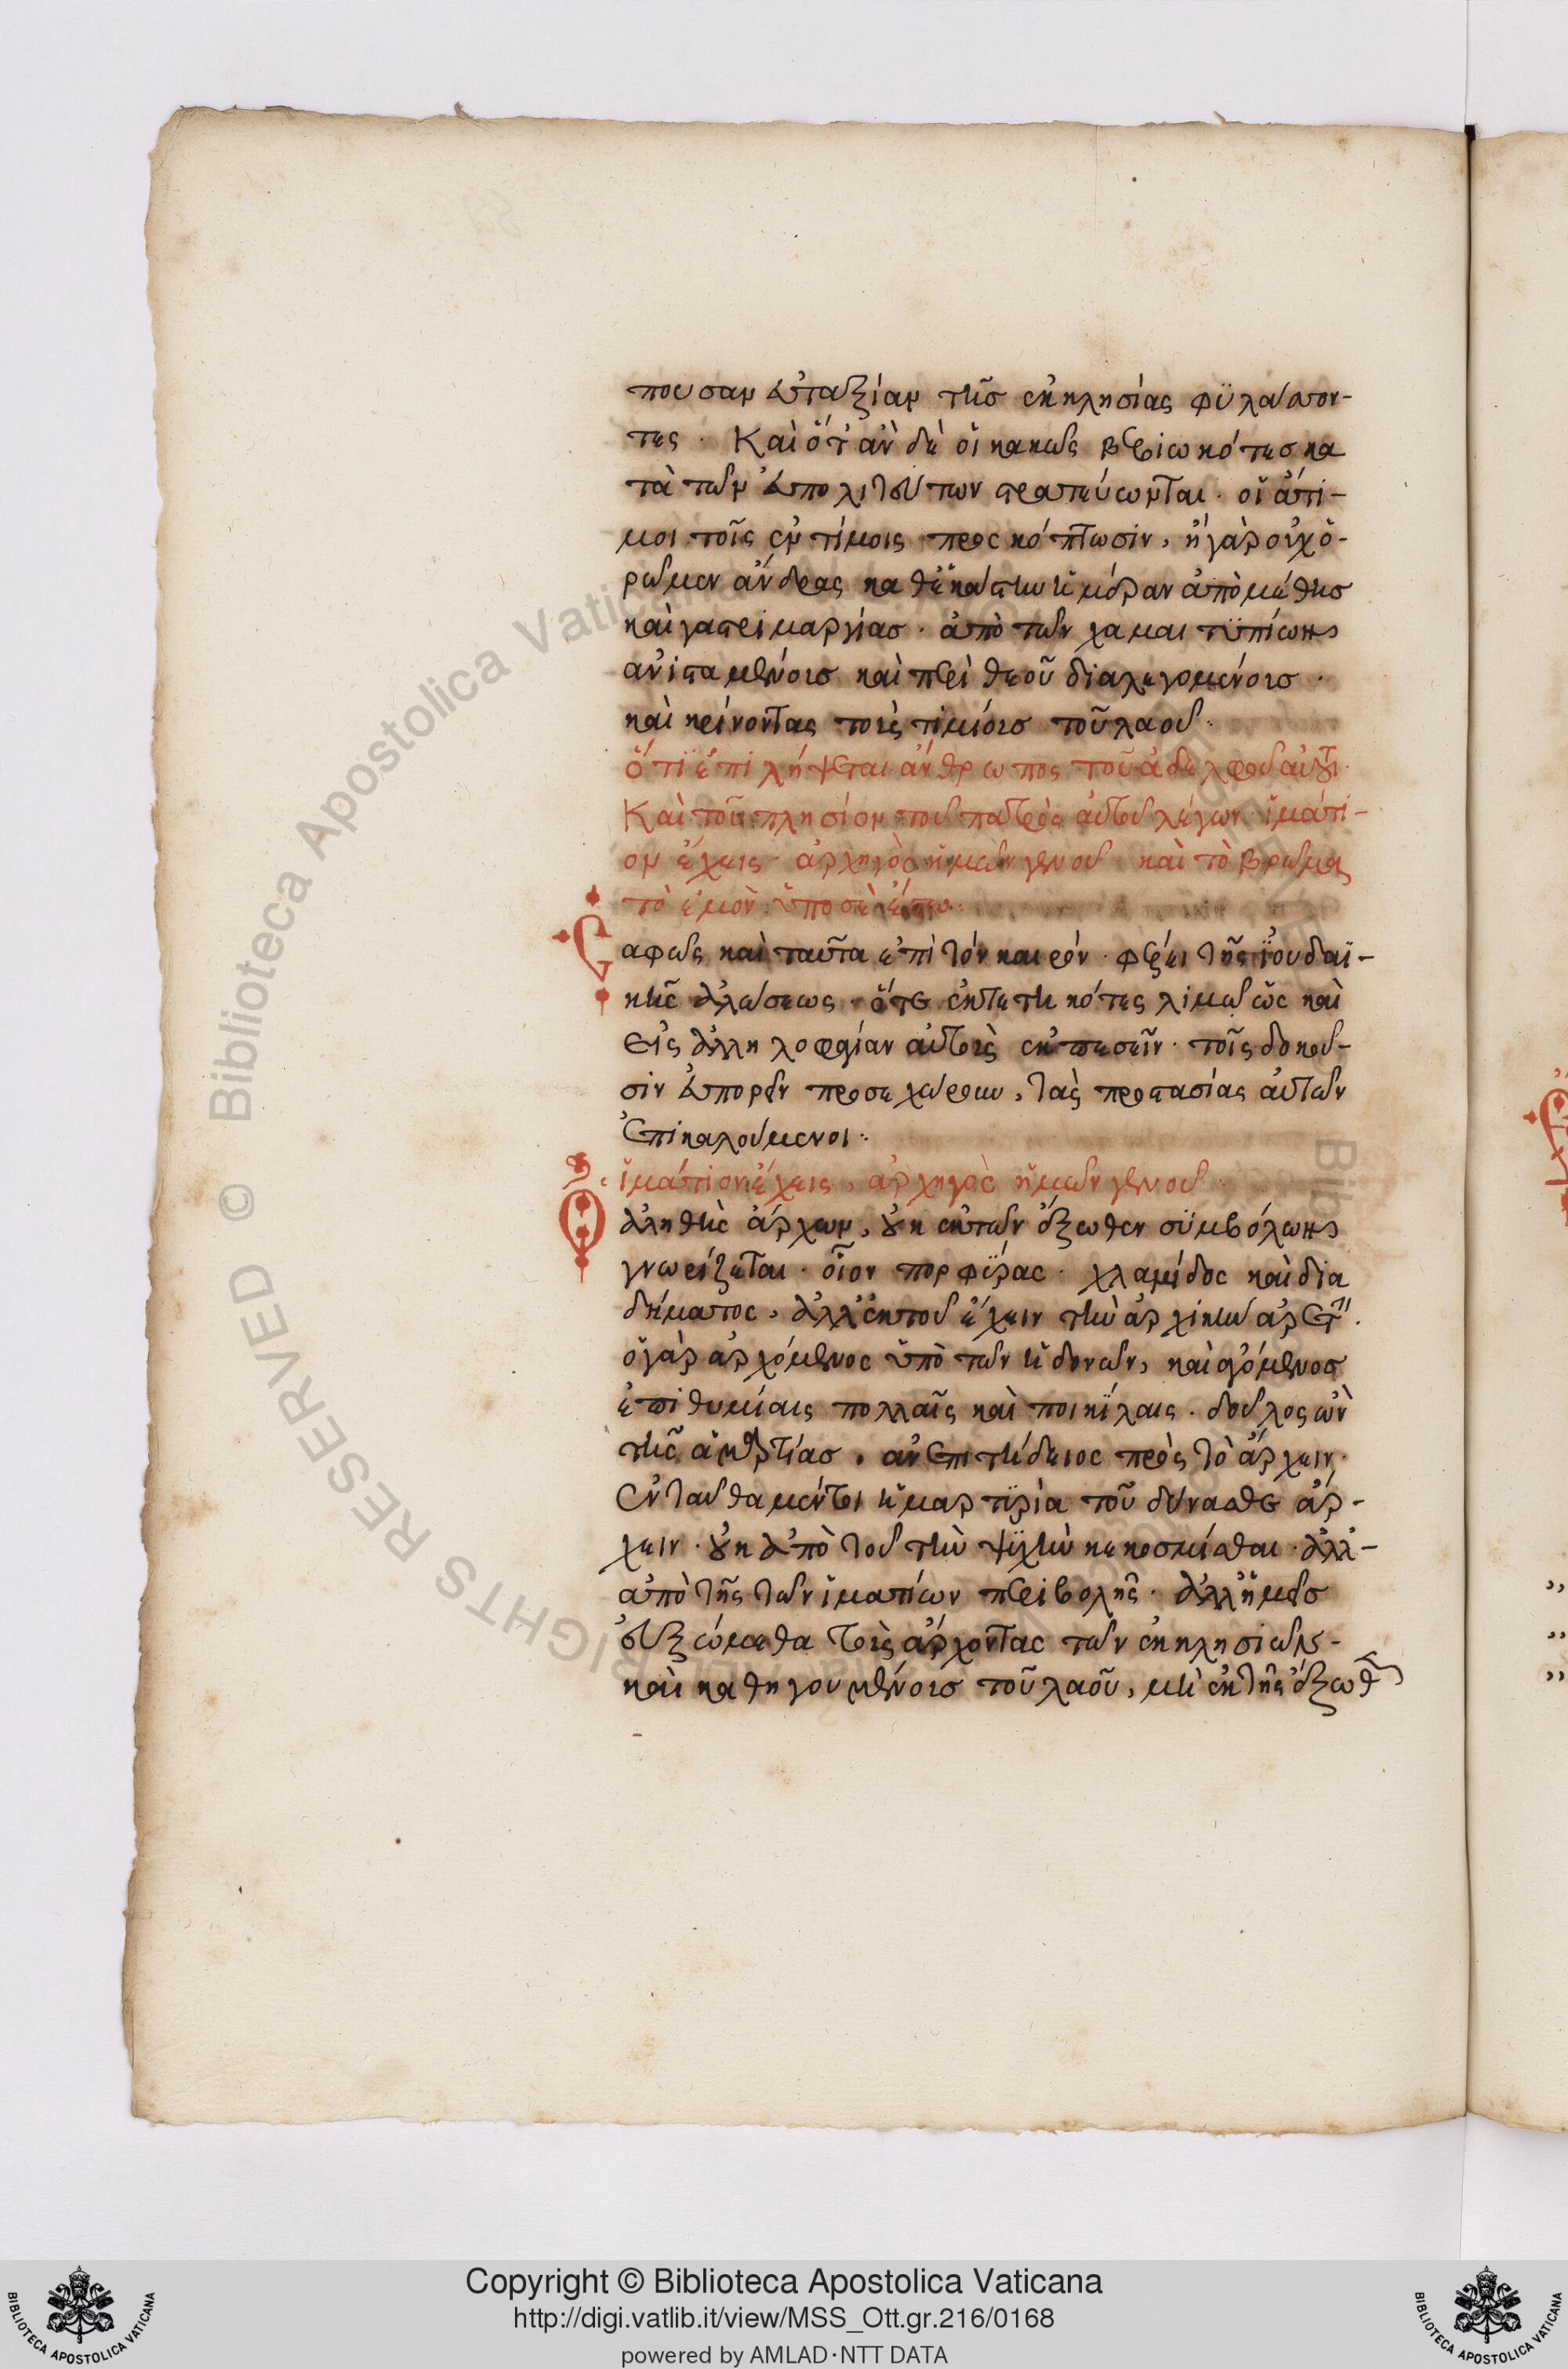 πουσαν εὐταξίαν τῆσ ἐκκλησίας φϋλάσσον-
τες · Καὶ ὅτ' ἂν δὲ οἱ κακῶς βεβιωκότεσ κα
τὰ τῶν εὐπολιτεύτων στρατεύωνται · οἱ ἄτι-
μοι τοῖς ἐντίμοις προσκόπτωσιν, ἢ γὰρ οὐχ ὁ-
ρῶμεν ἄνδρας καθ' ἑκάστην ἡμέραν ἀπὸ μέθησ
καὶ γαστριμαργίασ · ἀπὸ τῶν χαμαιτϋπίων
ἀνισταμένουσ καὶ περὶ θεοῦ διαλεγομένουσ ·
καὶ κρίνοντας τοὺς τιμίουσ τοῦ λαοῦ ·
ὅτι ἐπιλήψεται ἄνθρωπος τοῦ ἀδελφοῦ αὐτοῦ ·
Καὶ τοῦ πλησίον τοῦ πατρὸς αὐτοῦ λέγων · ἱμάτι-
ον ἔχεις · ἀρχηγὸς ἡμῶν γενοῦ · καὶ τὸ βρῶμα
τὸ ἐμὸν ὑπὸ σὲ ἔστω ·
Σαφῶς καὶ ταῦτα ἐπὶ τὸν καιρόν · φέρει τῆς ἰουδαϊ-
κῆς ἁλώσεως · ὅτε ἐκτετηκότες λιμῷ ὡς καὶ
εἰς ἀλληλοφαγίαν αὐτοὺς ἐκπεσεῖν · τοῖς δοκοῦ-
σιν εὐπορεῖν προσεχώρουν, τὰς προστασίας αὐτῶν
ἐπικαλούμενοι ·
ἱμάτιον ἔχεις, ἀρχηγὸς ἡμῶν γενοῦ
Ὁ ἀληθὴς ἄρχων, οὐκ ἐκ τῶν ἔξωθεν σϋμβόλων
γνωρίζεται · οἷον πορφϋρας · χλαμίδος καὶ δια
δήματος, ἀλλ' ἐκ τοῦ ἔχειν τὴν ἀρχικὴν ἀρετήν ·
ὁ γὰρ ἀρχόμενος ὑπὸ τῶν ἡδονῶν, καὶ ἀγόμενοσ
ἐπιθυμίαις πολλαῖς καὶ ποικίλαις · δοῦλος ὢν
τῆς ἁμαρτίασ, ἀνεπιτήδειος πρὸς τὸ ἄρχειν ·
Ἐνταῦθα μέντοι ἡ μαρτϋρία τοῦ δύνασθε ἄρ-
χειν · οὐκ ἀπὸ τοῦ τὴν ψϋχὴν κεκοσμίσθαι · ἀλλ'-
ἀπὸ τῆς τῶν ἱματίων περιβολῆς · ἀλλ' ἡμεῖσ
εὐξώμεθα τοὺς ἄρχοντας τῶν ἐκκλησιῶν -
καὶ καθηγουμένουσ τοῦ λαοῦ, μὴ ἐκ τῆς ἔξωθεν